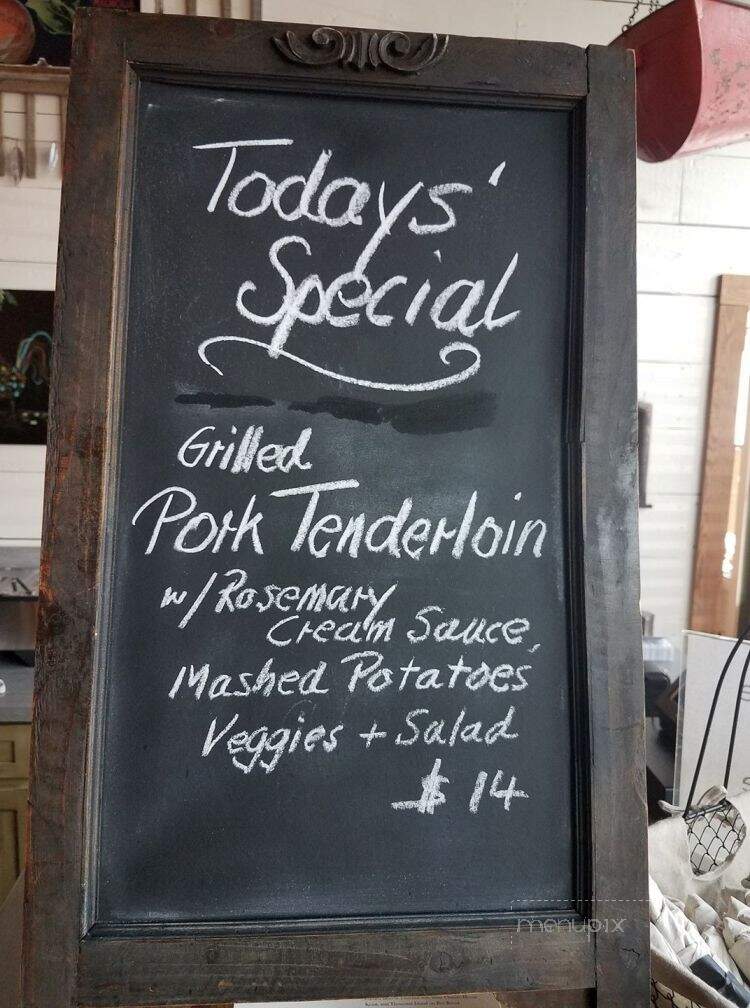 Todays'
Special
Grilled
Pork Tenderloin
w/ Rosemary
Cream Sauce,
Mashed Potatoes
Veggies + Salad
$ 14
menupix